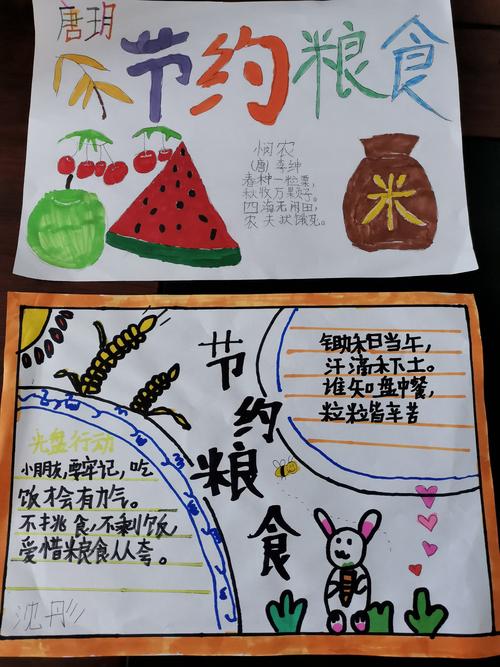 唐玥
节约粮食
悯农
(唐)李绅
春种一粒粟,
秋收万颗子。
四海无闲田,
农夫犹饿死。
米
节约粮食
锄禾日当午,
汗滴禾下土。
谁知盘中餐,
粒粒皆辛苦
光盘行动
小朋友,要牢记,吃
饭才会有力气。
不挑食,不剩饭,
爱惜粮食人人夸。
沈彤